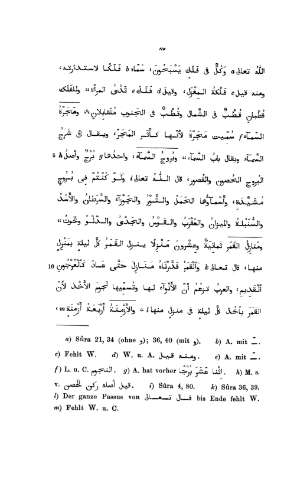 ٨٧
اللّه تعالى a وَكُلٌّ فِي فَلَكٍ يَسْبَحُونَ، سمّاه b فلكًا لاستدارته،
ومنه قيل c فلكة المغزل، وقيل d فلك e ثدى المرأة، وللفلك
قطبان قطب فى الشمال وقطب فى الجنوب متقابلان،
السماء f سمّيت مجرّة لأنّها كأثر المجرّ، ويقال فى شرج
السماء ويقال باب السماء، وبروج السماء، واحدها g برج وأصل h 5
البروج الحصون والقصور، قال اللّه تعالى i وَلَوْ كُنْتُمْ فِي بُرُوجٍ
مُشَيَّدَةٍ، وأسماؤها الحمل والثور والجوزاء والسرطان والأسد
والسنبلة والميزان والعقرب والقوس والجدى والدلو والحوت،
ومنازل القمر ثمانية وعشرون منزلًا ينزل القمر كلّ ليلة بمنزل
منها، قال تعالى k وَالقَمَرَ قَدَّرْنَاهُ مَنَازِلَ حَتَّى عَادَ كَالعُرْجُونِ 10
القَدِيمِ، والعرب تزعم أنّ الأنواء لها وتسمّيها نجوم الأخذ لأنّ
القمر يأخذ كلّ ليلة فى منزل منها l، والأزمنة أربعة أزمنة m
a) Sûra 21, 34 (ohne و); 36, 40 (mit و). b) A. mit
c) Fehlt W. d) W. u. A. ومنه قيل. e) A. mit
f) L. u. C. g) A. hat vorher اثنا عشر برجا. h) M. u.
V. قيل أصله ركن الحصن. i) Sûra 4, 80. k) Sûra 36, 39.
l) Der ganze Passus von قال تعالى bis Ende fehlt W.
m) Fehlt W. u. C.